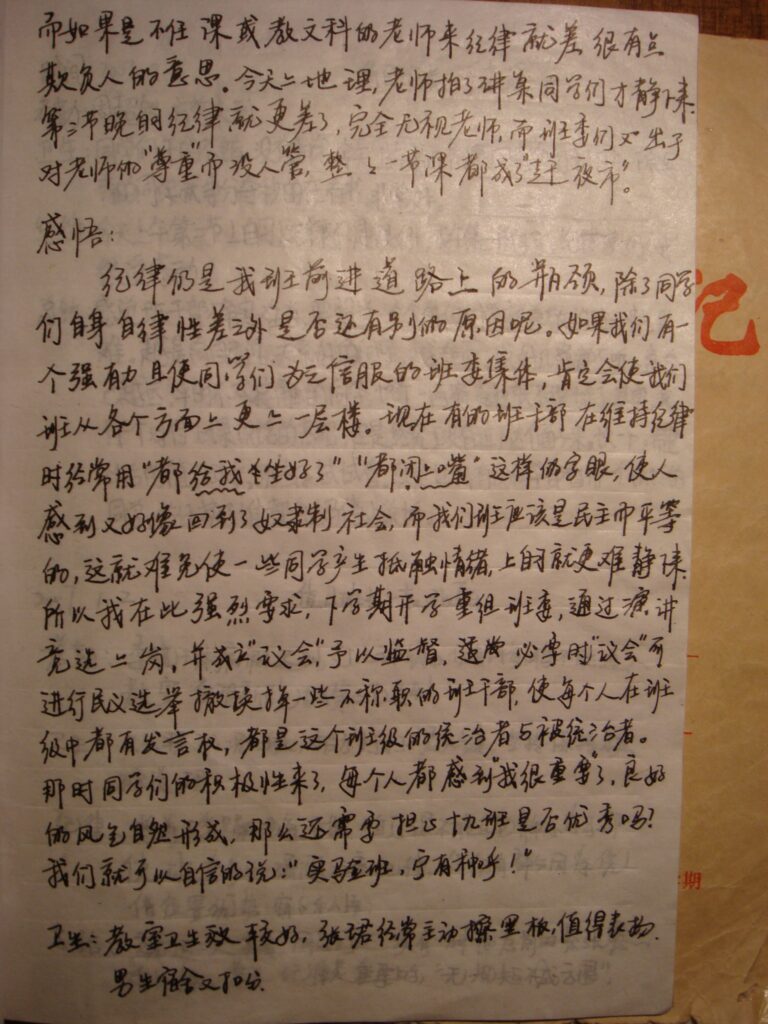 而如果是不任课或教文科的老师来纪律就差很有点
欺负人的意思。今天上地理,老师拍了讲桌同学们才静下来,
第二节晚自纪律就更差了,完全无视老师,而班委们又出于
对老师的"尊重"而没人管,整上一节课都成了"赶夜市"。
感悟:
纪律仍是我班前进道路上的瓶颈,除了同学
们自身自律性差之外是否还有别的原因呢。如果我们有一
个强有力且使同学们为之信服的班委集体,肯定会使我们
班从各个方面上更上一层楼。现在有的班干部在维持纪律
时经常用"都给我坐好了""都闭上嘴"这样的字眼,使人
感到又好像回到了奴隶制社会,而我们班应该是民主而平等
的,这就难免使一些同学产生抵触情绪,上自就更难静下来,
所以我在此强烈要求,下学期开学重组班委,通过演讲
竞选上岗,并成立"议会",予以监督,必要时"议会"可
进行民义选举撤换掉一些不称职的班干部,使每个人在班
级中都有发言权,都是这个班级的统治者与被统治者。
那时同学们的积极性来了,每个人都感到"我很重要"了,良好
的风气自然形成,那么还需要担心十九班是否优秀吗?
我们就可以自信的说:"实验班,宁有种乎!"
卫生:教室卫生较好,张珺经常主动擦黑板,值得表扬.
男生宿舍又扣分.
记
期